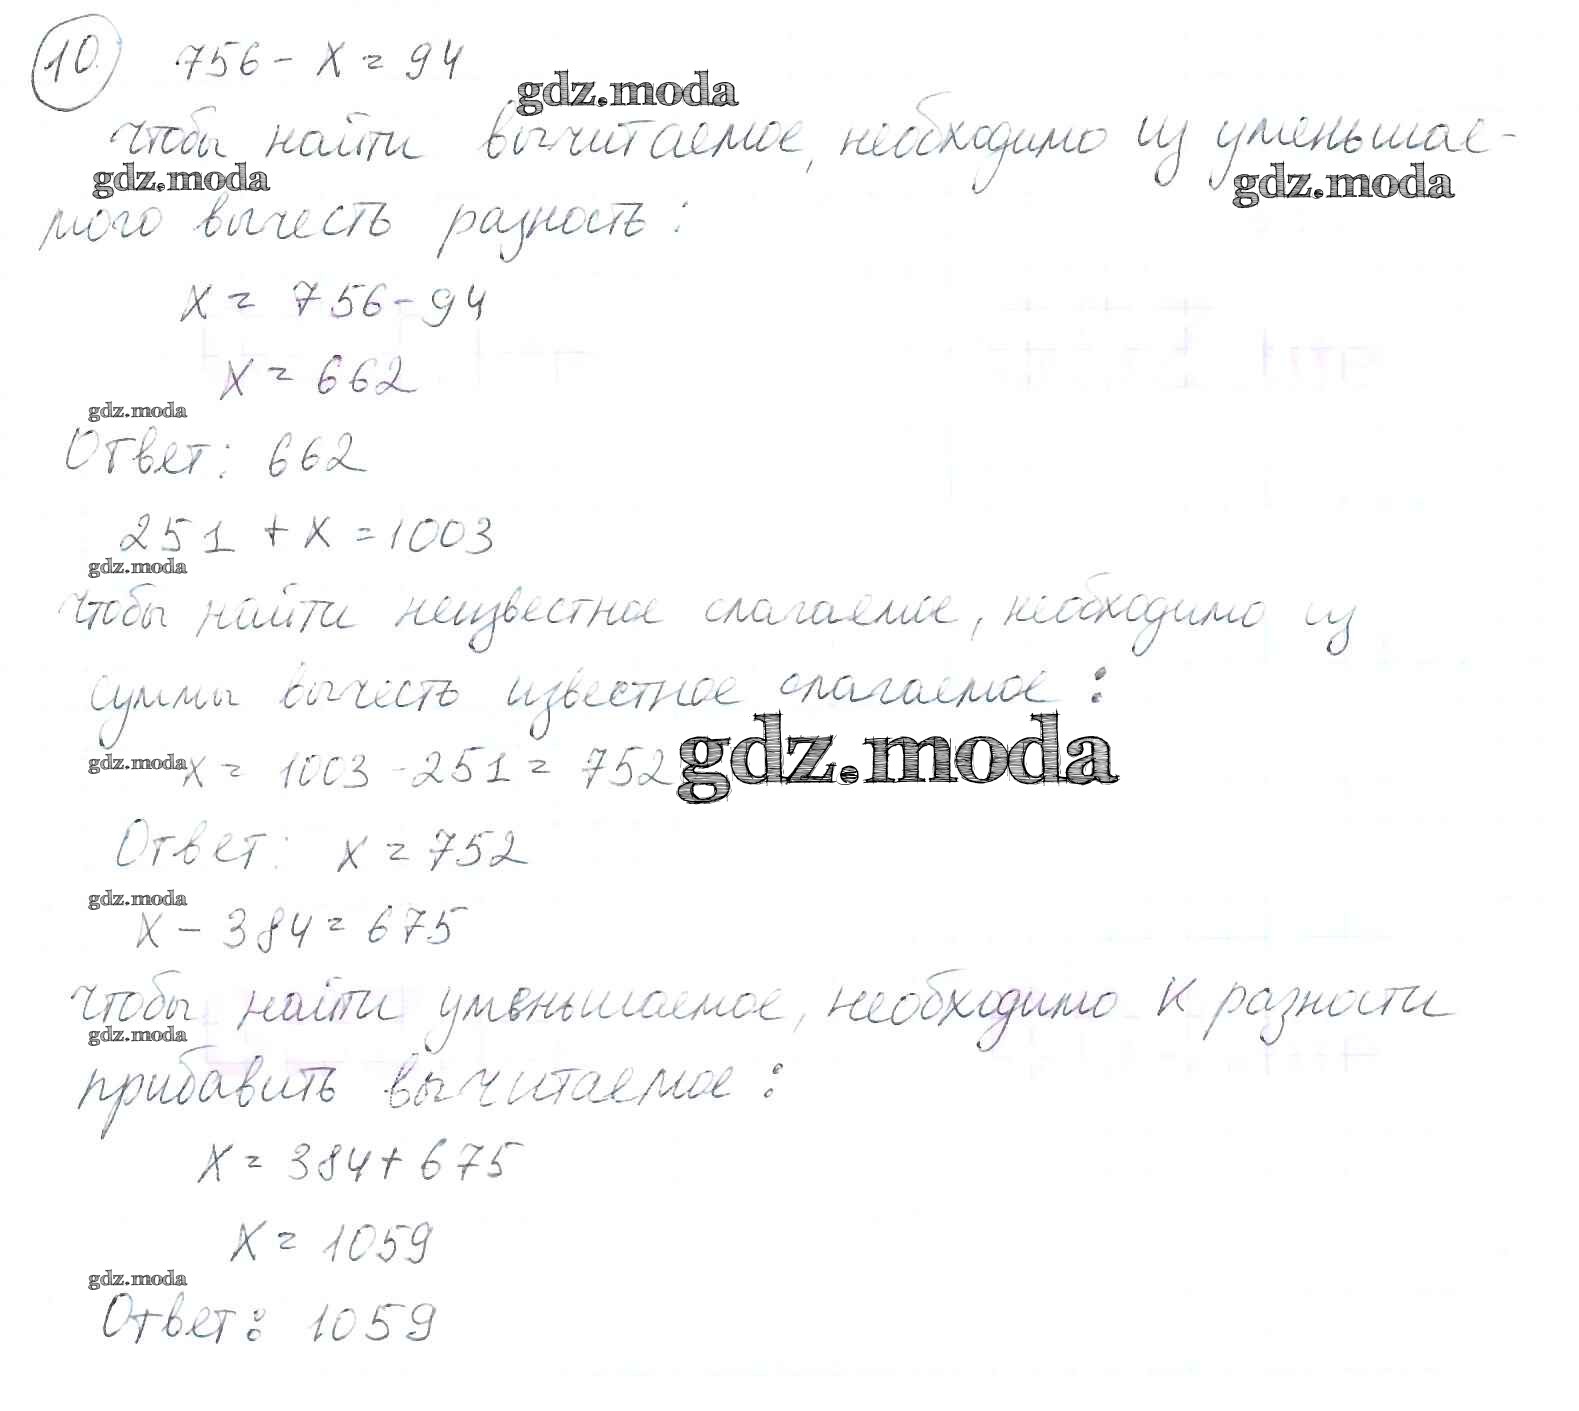 10. 756 - x = 94
gdz.moda
Чтобы найти вычитаемое, необходимо из уменьшае-
gdz.moda gdz.moda
мого вычесть разность:
x = 756 - 94
x = 662
gdz.moda
Ответ: 662
251 + x = 1003
gdz.moda
Чтобы найти неизвестное слагаемое, необходимо из
суммы вычесть известное слагаемое:
gdz.moda x = 1003 - 251 = 752 gdz.moda
Ответ: x = 752
gdz.moda
x - 384 = 675
Чтобы найти уменьшаемое, необходимо к разности
gdz.moda
прибавить вычитаемое:
x = 384 + 675
x = 1059
gdz.moda
Ответ: 1059